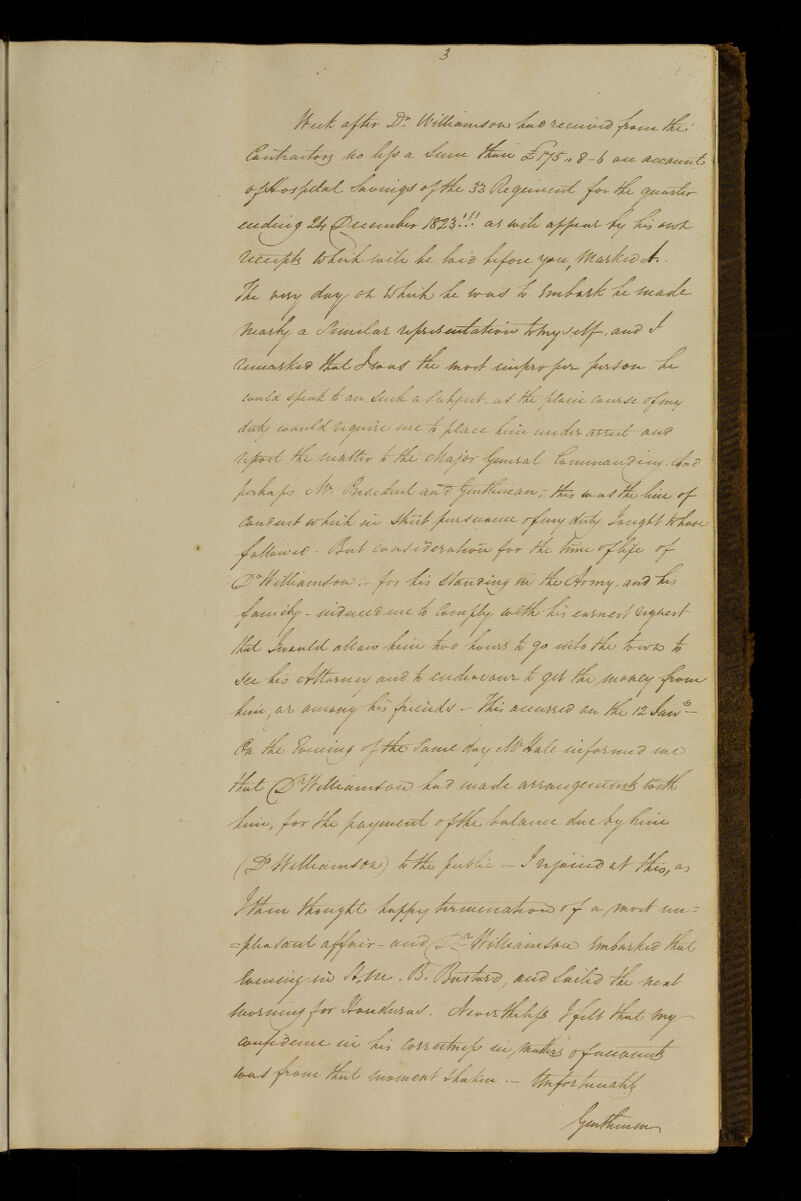 3
Week after Dr. Williamson had received from the
Contractors no less a Sum than £175,, 8-6 on account
of Hospital Savings of the 33 Regiment for the quarter
ending 24 December 1823!!! as will appear by his own
receipts which will be laid before you, Marked A.
The very day on which he was to embark he made
nearly a Similar representation to myself, and I
remarked that I was the most improper person he
could speak to on such a subject, as the plain course of my
duty would require me to place him under arrest and
report the matter to the Major General Commanding. And
perhaps Mr. President and Gentlemen, - this was the line of
conduct which in strict pursuance of my duty I ought to have
followed. But consideration for the time of life of
Dr Williamson. - for his standing in the Army, and his
family - induced me to comply with his earnest request
that I would allow him two hours to go into the town to
see his Attorney and to endeavour to get the money from
him, or among his friends. - This occurred on the 12 Jany -
On the Evening of the Same day Mr Hale informed me
that Dr Williamson had made arrangements with
him, for the payment of the balance due by him
(Dr Williamson) to the public - I rejoiced at this, as
I then thought happy termination of a most un=
=pleasant affair - and Dr Williamson embarked that
Evening in H. M. B. Bustard, and Sailed the next
morning for Honduras. Nevertheless I felt that my
confidence in his correctness in matters of accounts
was from that moment shaken. - Unfortunately
Gentlemen